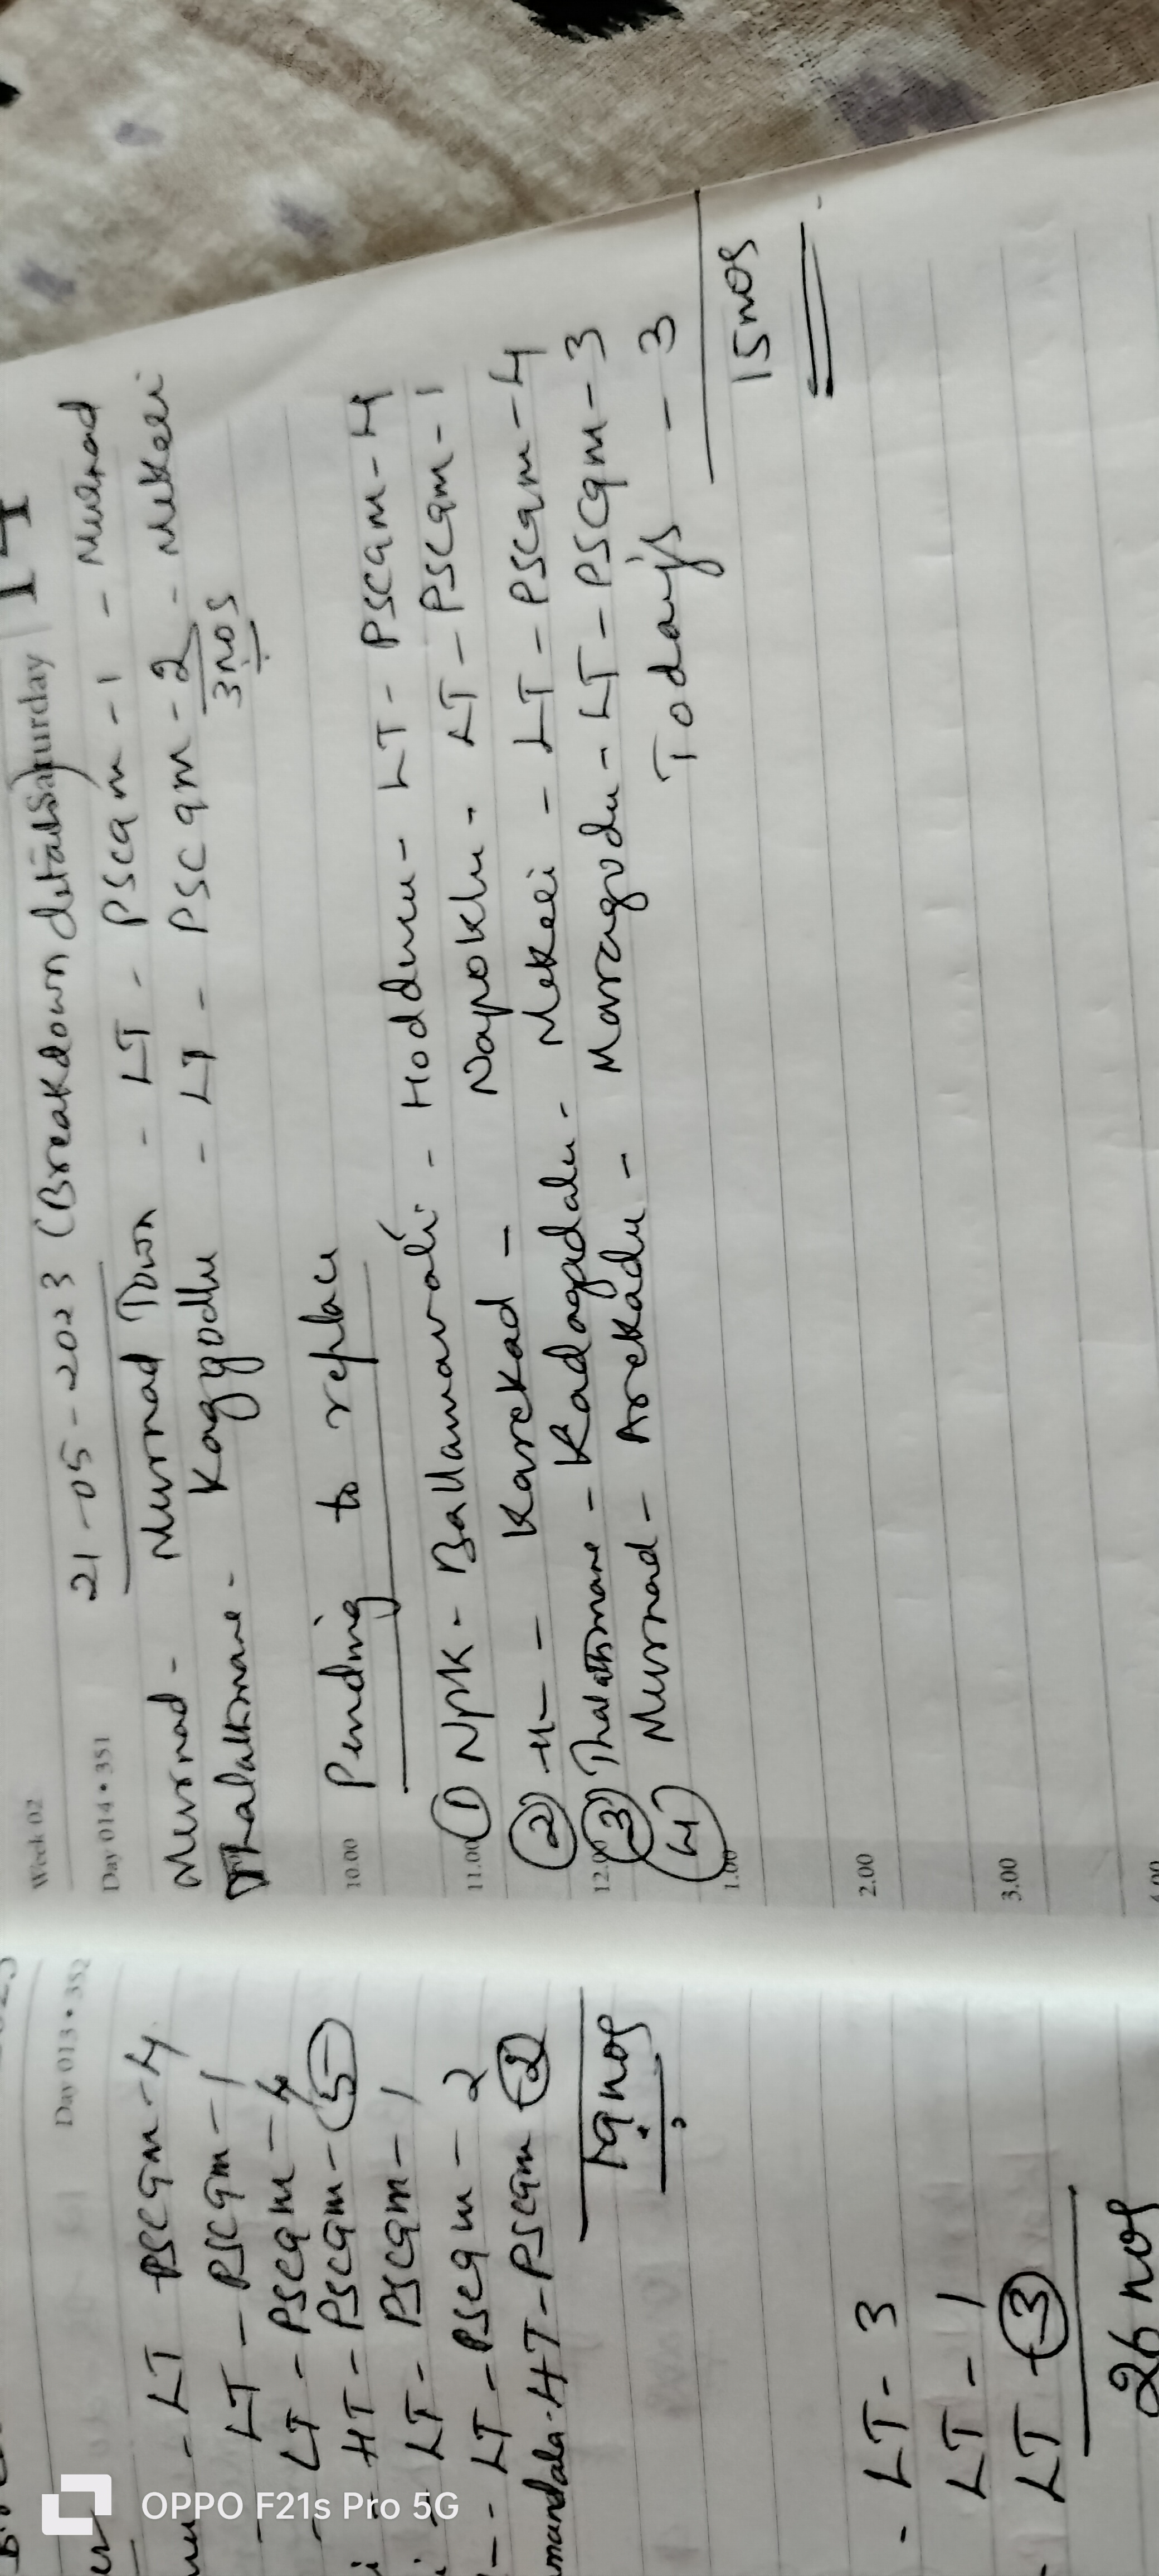 Day 013 • 352
LT PSCqm - 4
LT - PSCqm - 1
LT - PSCqm - 4
HT - PSCqm - 5
LT - PSCqm - 1
LT - PSCqm - 2
mandala - HT - PSCqm 2
19 nos
- LT - 3
LT - 1
- LT - 3
26 nos
Week 02
Saturday 14
Day 014 • 351
21-05-2023 (Breakdown details)
Murnad - Murnad Town - LT - PSCqm - 1 - Murnad
Thalathmane - Kaggodlu - LT - PSCqm - 2 - Mekeri
3 nos
Pending to replace
10.00
① NPK - Ballamavati - Hoddur - LT - PSCqm - 4
11.00
② -11- - Karekad - Napoklu - LT - PSCqm - 1
③ Thalathmane - Kadagadalu - Mekeri - LT - PSCqm - 4
12.00
④ Murnad - Arekadu - Maragodu - LT - PSCqm - 3
Todays - 3
1.00
15 nos
2.00
3.00
OPPO F21s Pro 5G